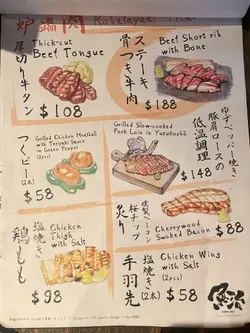 炉端肉 Robatayaki
厚切り牛タン
Thick-cut
Beef Tongue
$108
骨つき牛肉
ステーキ
Beef Short rib
with Bone
$188
つくピー(2本)
Grilled Chicken Meatball
with Teriyaki Sauce
in Green Pepper
(2pcs)
$58
Grilled Slow-cooked
Pork Loin in Yuzukosho
ゆずペッパー焼き
豚肩ロースの
低温調理
$148
鶏もも
塩焼き
Chicken
Thigh
with Salt
$98
炙り
桜チップ
燻製ベーコン
Cherrywood
Smoked Bacon
$88
手羽先
塩焼き(2本)
Chicken Wing
with Salt
(2pcs)
$58